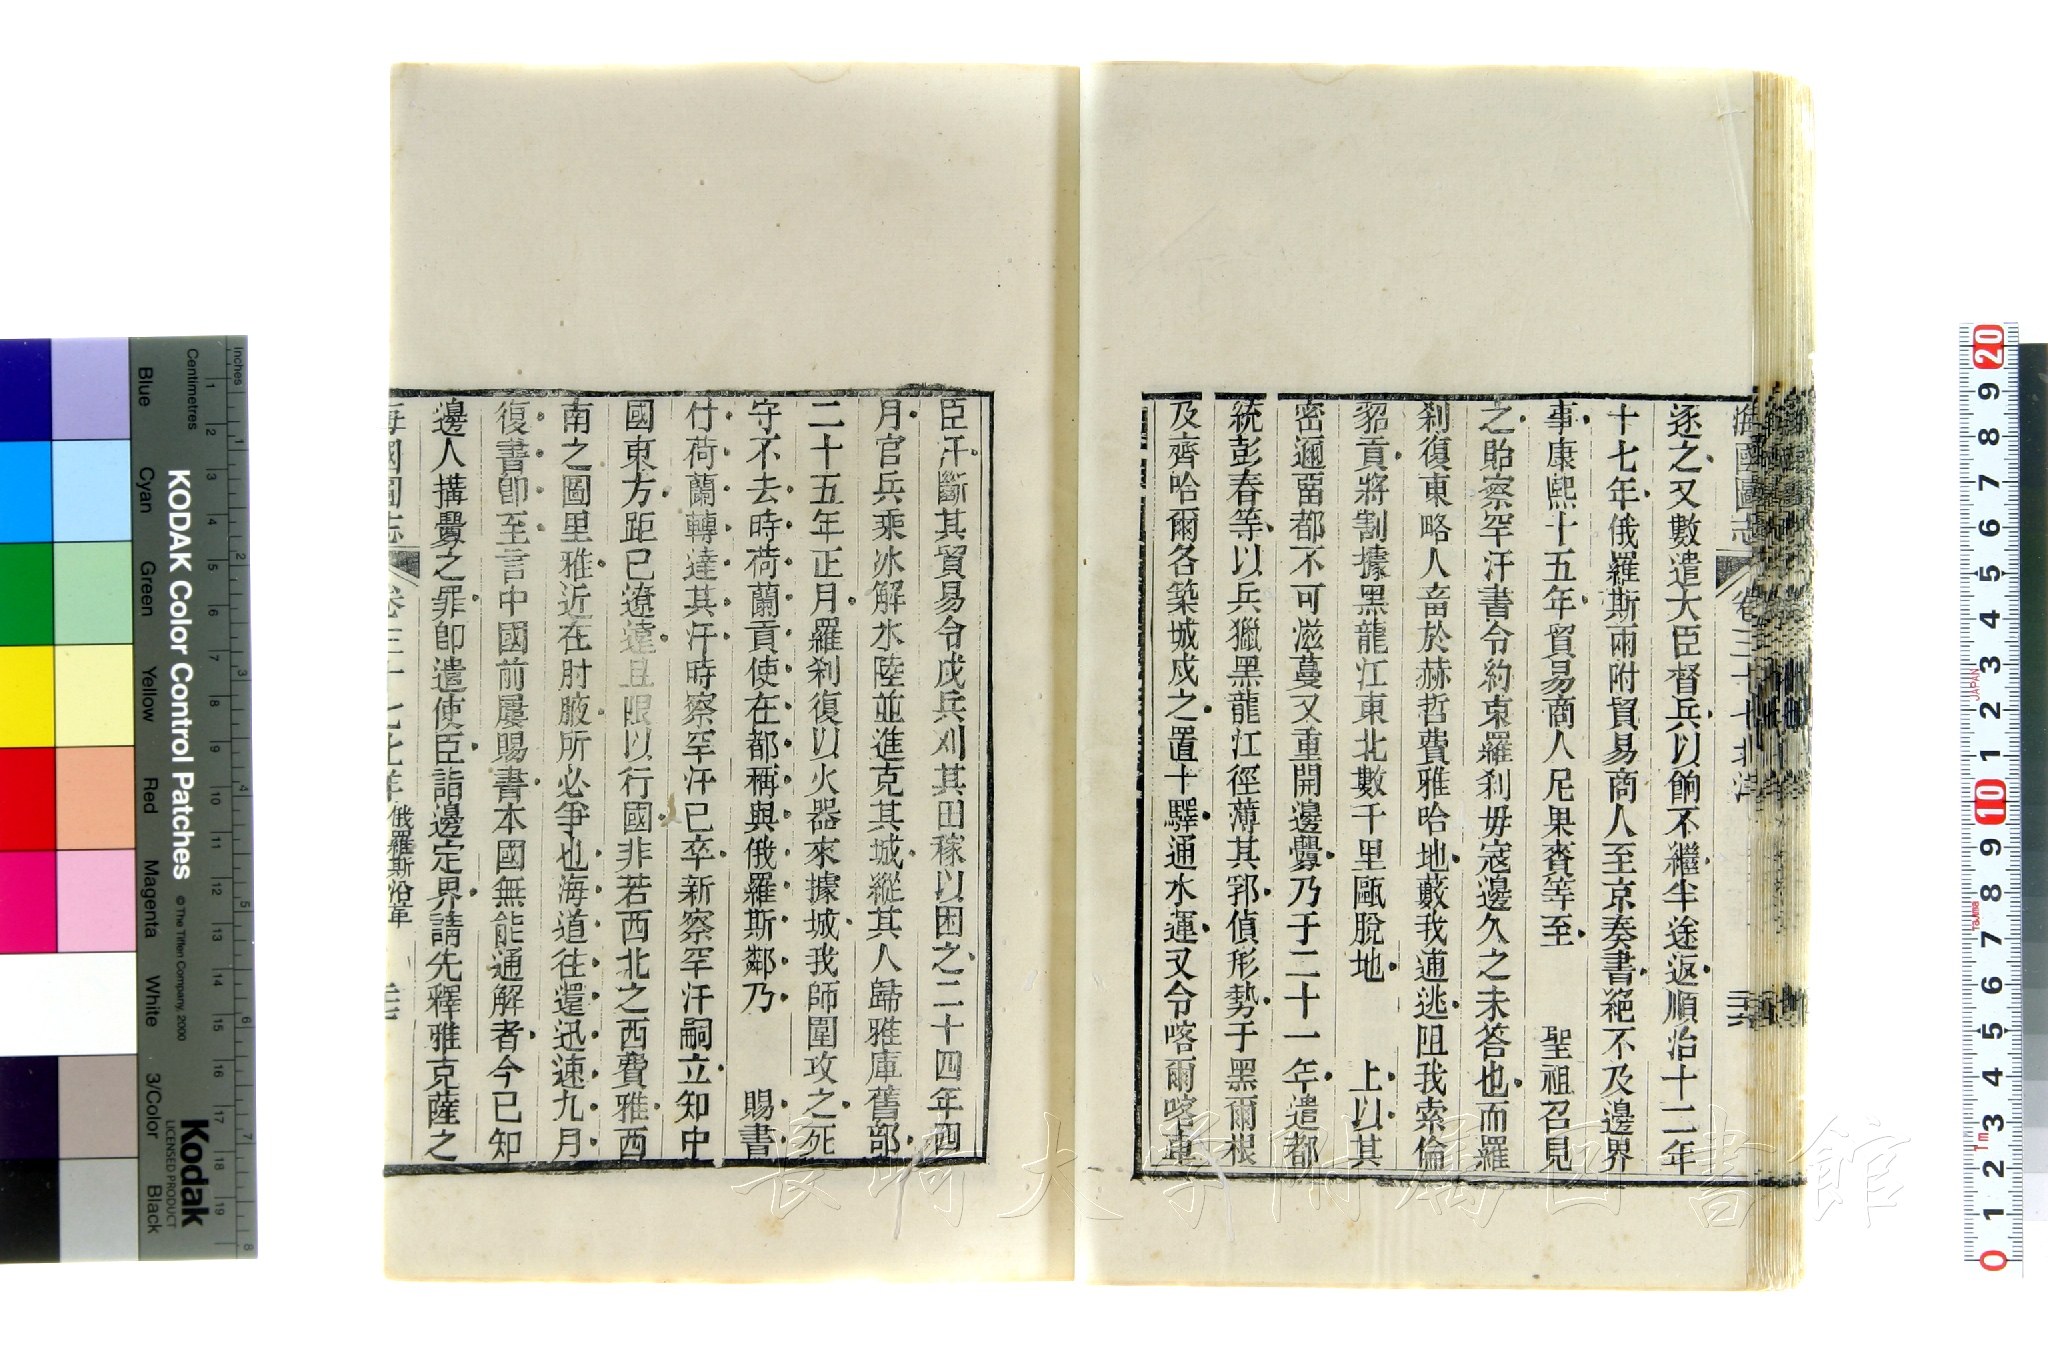 海國圖志 卷三十七 北洋 三六
逐之又數遣大臣督兵以餉不繼半途返順治十二年
十七年俄羅斯兩附貿易商人至京奏書絕不及邊界
事康熙十五年貿易商人尼果賚等至 聖祖召見
之貽察罕汗書令約束羅剎毋寇邊久之未答也而羅
剎復東略人畜於赫哲費雅哈地藪我逋逃阻我索倫
貂貢將割據黑龍江東北數千里甌脫地 上以其
密邇留都不可滋蔓又重開邊釁乃于二十一年遣都
統彭春等以兵獵黑龍江徑薄其郛偵形勢于黑爾根
及齊哈爾各築城戍之置十驛通水運又令喀爾喀車
臣汗斷其貿易令戍兵刈其田稼以困之二十四年四
月官兵乘冰解水陸並進克其城縱其人歸雅庫舊部
二十五年正月羅剎復以火器來據城我師圍攻之死
守不去時荷蘭貢使在都稱與俄羅斯鄰乃 賜書
付荷蘭轉達其汗時察罕汗已卒新察罕汗嗣立知中
國東方距已遼遠且限以行國非若西北之西費雅西
南之圖里雅近在肘腋所必爭也海道往還迅速九月
復書卽至言中國前屢賜書本國無能通解者今已知
邊人搆釁之罪卽遣使臣詣邊定界請先釋雅克薩之
海國圖志 卷三十七 北洋 俄羅斯沿革 三七
長崎大学附属図書館
KODAK Color Control Patches
© The Tiffen Company, 2000
Kodak
LICENSED PRODUCT
Inches
Centimetres
Blue Cyan Green Yellow Red Magenta White 3/Color Black
1 2 3 4 5 6 7 8 9 10 11 12 13 14 15 16 17 18 19
1 2 3 4 5 6 7 8
20 9 8 7 6 5 4 3 2 1 10 9 8 7 6 5 4 3 2 1 0
JAPAN